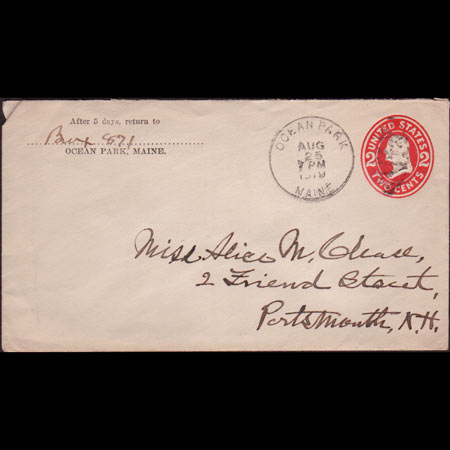 After 5 days, return to
Box 871
OCEAN PARK, MAINE.
OCEAN PARK
AUG
25
7 PM
1919
MAINE
UNITED STATES
2 2
TWO CENTS
Miss Alice M. Chase,
2 Friend Street,
Portsmouth, N.H.